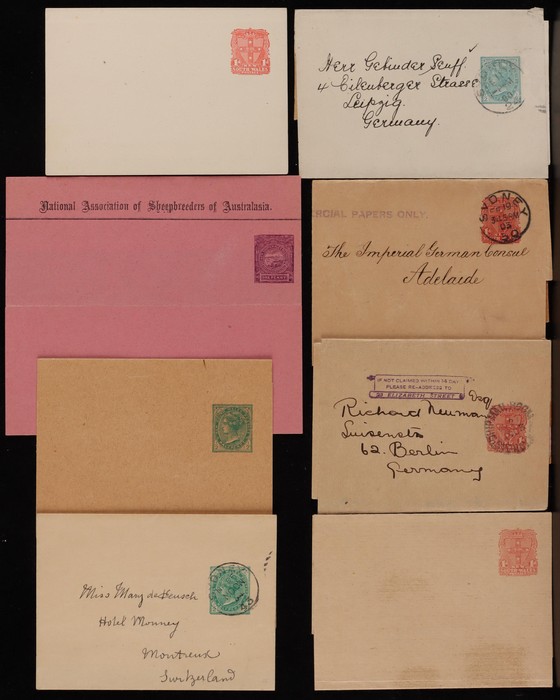 SOUTH WALES
Herr Gebinder Senff.
4 Eilenberger Strasse
Leipzig.
Germany.
National Association of Sheepbreeders of Australasia.
RCIAL PAPERS ONLY.
SYDNEY
The Imperial German Consul
Adelaide
IF NOT CLAIMED WITHIN
PLEASE RE-ADDRESS TO
ELIZABETH STREET
Esq
Richard Neumann
Luisenstr
62. Berlin
Germany
SYDNEY
Miss Mary de
Hotel Monney
Montreux
Switzerland